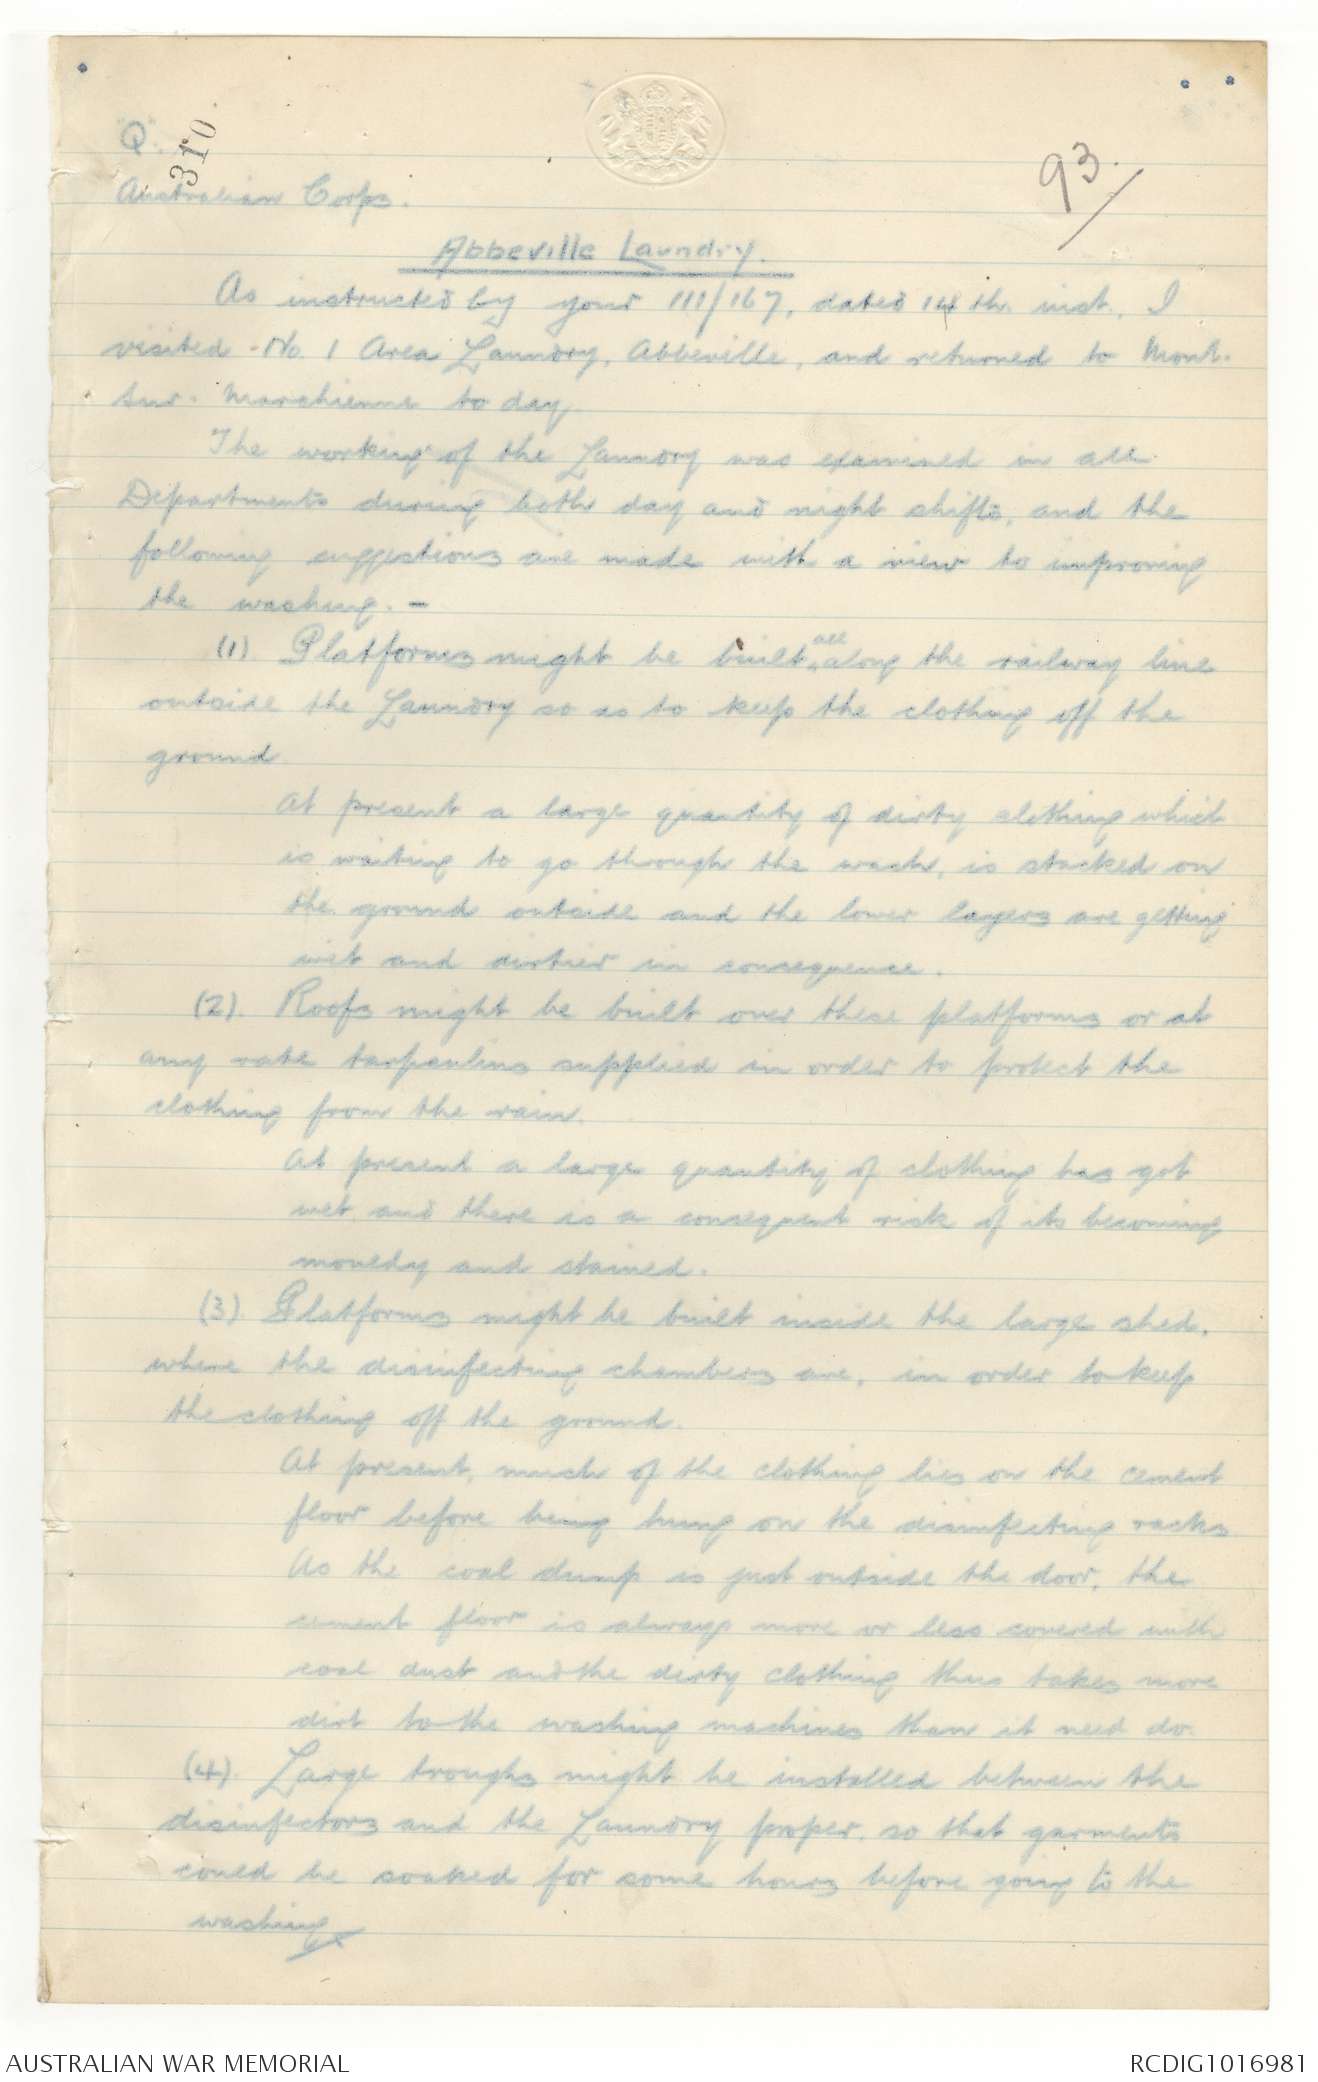 "Q".
310.
93.
Australian Corps.
Abbeville Laundry.
As instructed by your 111/167, dated 14th. inst., I
visited No. 1 Area Laundry, Abbeville, and returned to Mont-
sur-Marchienne to day.
The working of the Laundry was examined in all
Departments during both day and night shifts, and the
following suggestions are made with a view to improving
the washing. –
(1) Platforms might be built all along the railway line
outside the Laundry so as to keep the clothing off the
ground.
At present a large quantity of dirty clothing which
is waiting to go through the wash, is stacked on
the ground outside and the lower layers are getting
wet and dirtier in consequence.
(2). Roofs might be built over these platforms or at
any rate tarpaulins supplied in order to protect the
clothing from the rain.
At present a large quantity of clothing has got
wet and there is a consequent risk of its becoming
mouldy and stained.
(3) Platforms might be built inside the large shed,
where the disinfecting chambers are, in order to keep
the clothing off the ground.
At present, much of the clothing lies on the cement
floor before being hung on the disinfecting racks.
As the coal dump is just outside the door, the
cement floor is always more or less covered with
coal dust and the dirty clothing thus takes more
dirt to the washing machines than it need do.
(4). Large troughs might be installed between the
disinfectors and the Laundry proper, so that garments
could be soaked for some hours before going to the
washing
AUSTRALIAN WAR MEMORIAL
RCDIG1016981